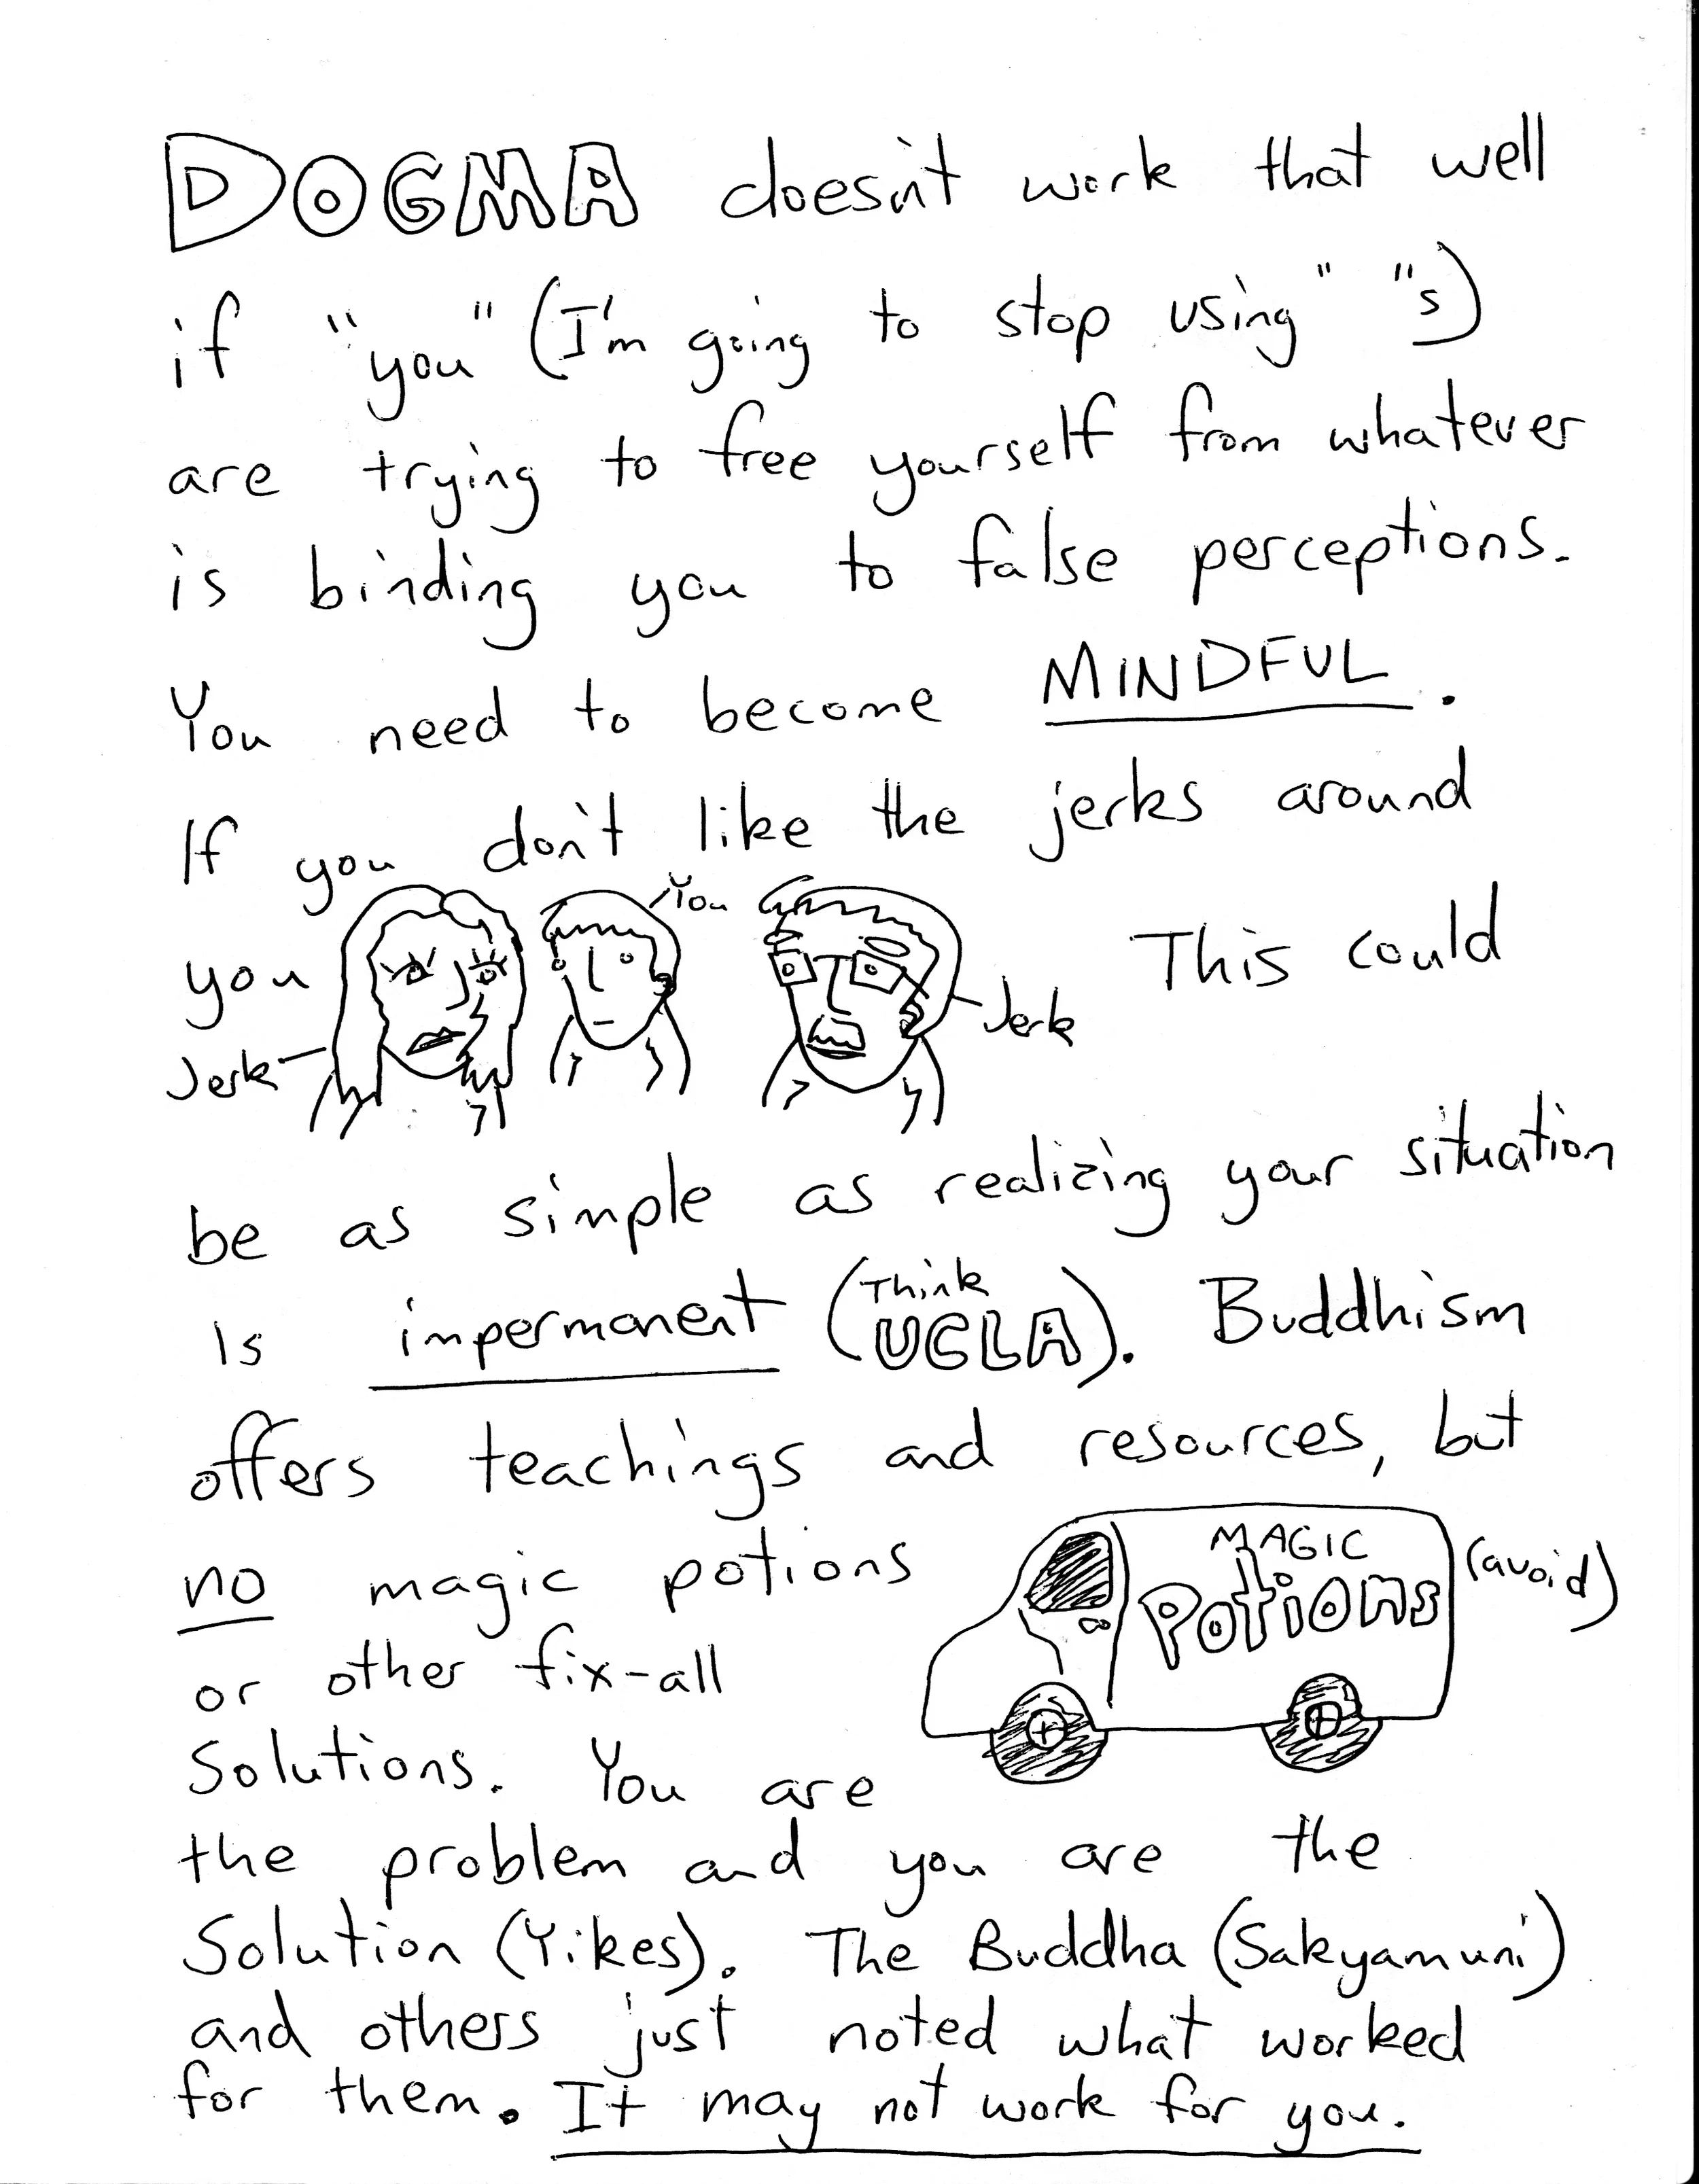 DOGMA doesn't work that well
if "you" (I'm going to stop using " "s)
are trying to free yourself from whatever
is binding you to false perceptions.
You need to become MINDFUL.
If you don't like the jerks around
You
you This could
Jerk
Jerk
be as simple as realizing your situation
is impermanent (Think UCLA). Buddhism
offers teachings and resources, but
no magic potions
MAGIC
Potions
(avoid)
or other fix-all
Solutions. You are
the problem and you are the
Solution (Yikes). The Buddha (Sakyamuni)
and others just noted what worked
for them. It may not work for you.